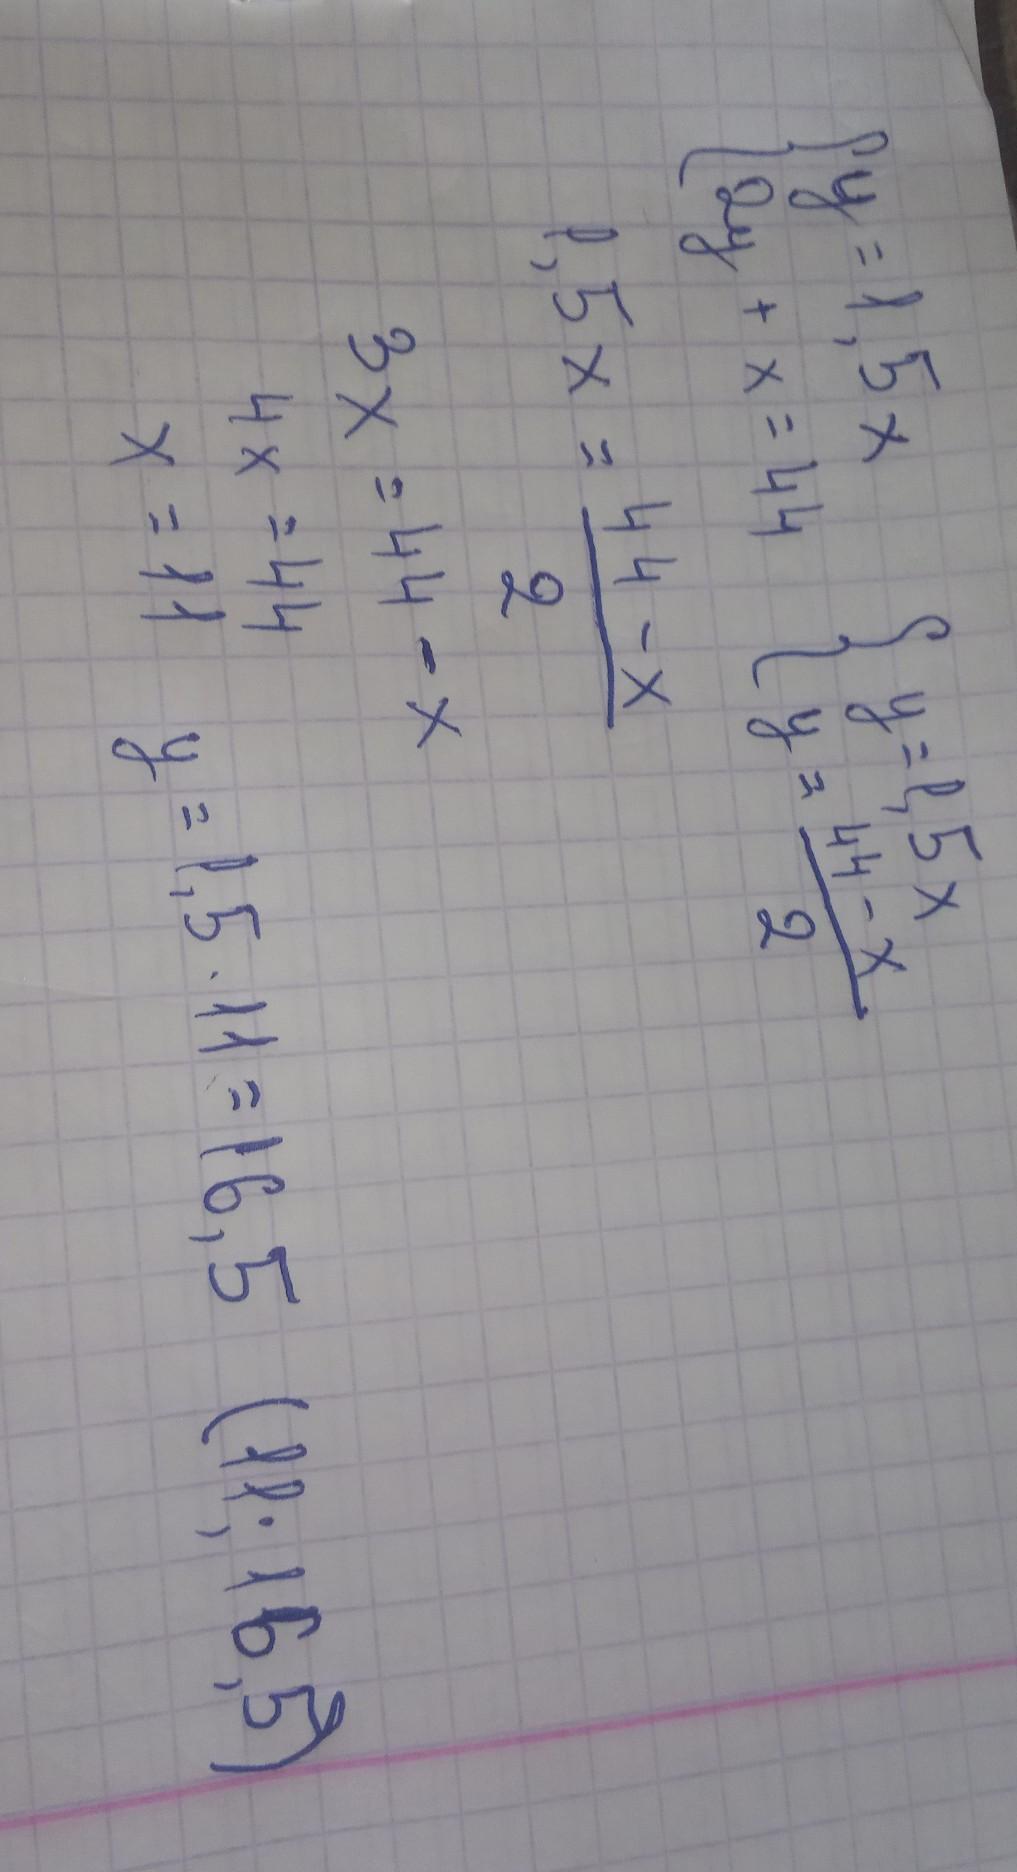 { y = 1,5x   { y = 1,5x
{ 2y + x = 44   { y = (44 - x)/2
1,5x = (44 - x)/2
3x = 44 - x
4x = 44
x = 11   y = 1,5 · 11 = 16,5   (11; 16,5)